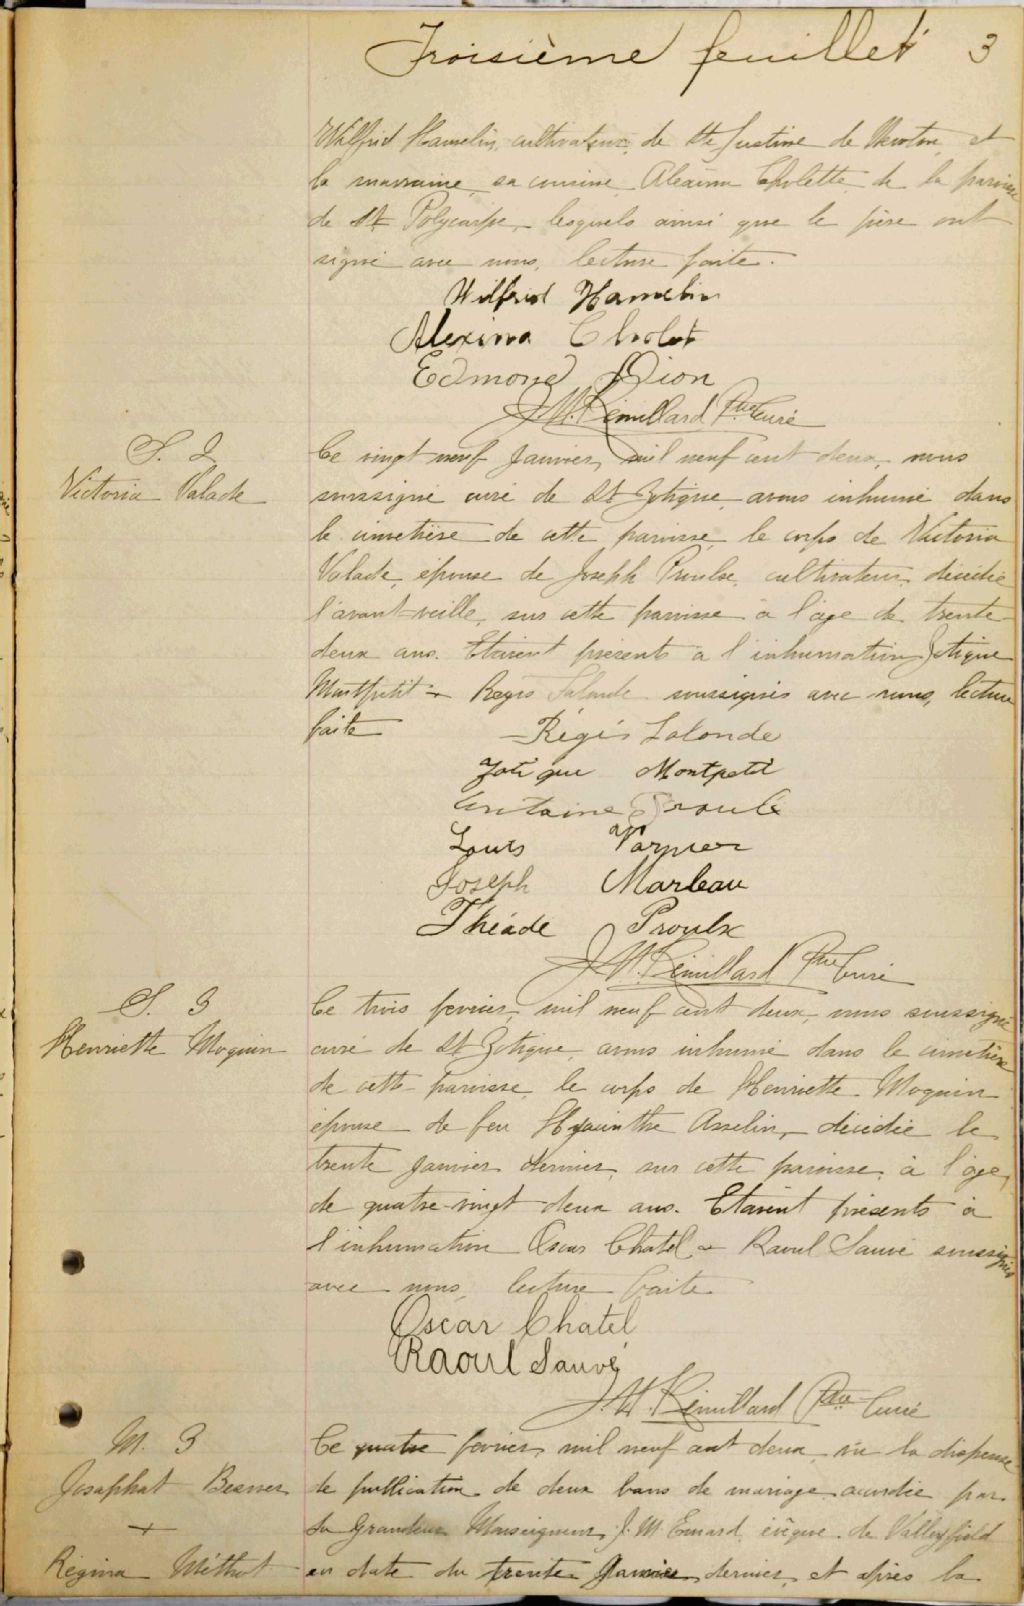 Troisième feuillet 3
Wilfrid Hamelin, cultivateur, de Ste Justine de Newton, et
la marraine, sa cousine Alexina Cholette, de la paroisse
de St Polycarpe, lesquels ainsi que le père ont
signé avec nous, lecture faite.
Wilfrid Hamelin
Alexina Cholet
Edmond Dion
J.M. Rémillard Ptre Curé
S. 2
Victoria Valade
Ce vingt neuf Janvier, mil neuf cent deux, nous
soussigné curé de St Zotique, avons inhumé dans
le cimetière de cette paroisse, le corps de Victoria
Valade, épouse de Joseph Proulx, cultivateur, décédée
l'avant-veille, sur cette paroisse à l'âge de trente-
deux ans. Etaient présents à l'inhumation Zotique
Montpetit + Régis Lalonde soussignés avec nous, lecture
faite
Régis Lalonde
Zotique Montpetit
Antoine Proulx
Louis
Joseph Marleau
Théade Proulx
J.M. Rémillard Ptre Curé
S. 3
Henriette Moquin
Ce trois fevrier, mil neuf cent deux, nous soussigné
curé de St Zotique, avons inhumé dans le cimetière
de cette paroisse, le corps de Henriette Moquin
épouse de feu Hyacinthe Asselin, décédée le
trente Janvier dernier, sur cette paroisse, à l'âge
de quatre-vingt deux ans. Etaient présents à
l'inhumation Oscar Chatel + Raoul Sauvé soussignés
avec nous, lecture faite
Oscar Chatel
Raoul Sauvé
J.M. Rémillard Ptre Curé
M. 3
Josaphat Besner
+
Régina Méthot
Ce quatre fevrier, mil neuf cent deux, vu la dispense
de publication de deux bans de mariage accordée par
Sa Grandeur Monseigneur J. M. Emard, évêque de Valleyfield
en date du trente Janvier dernier, et après la